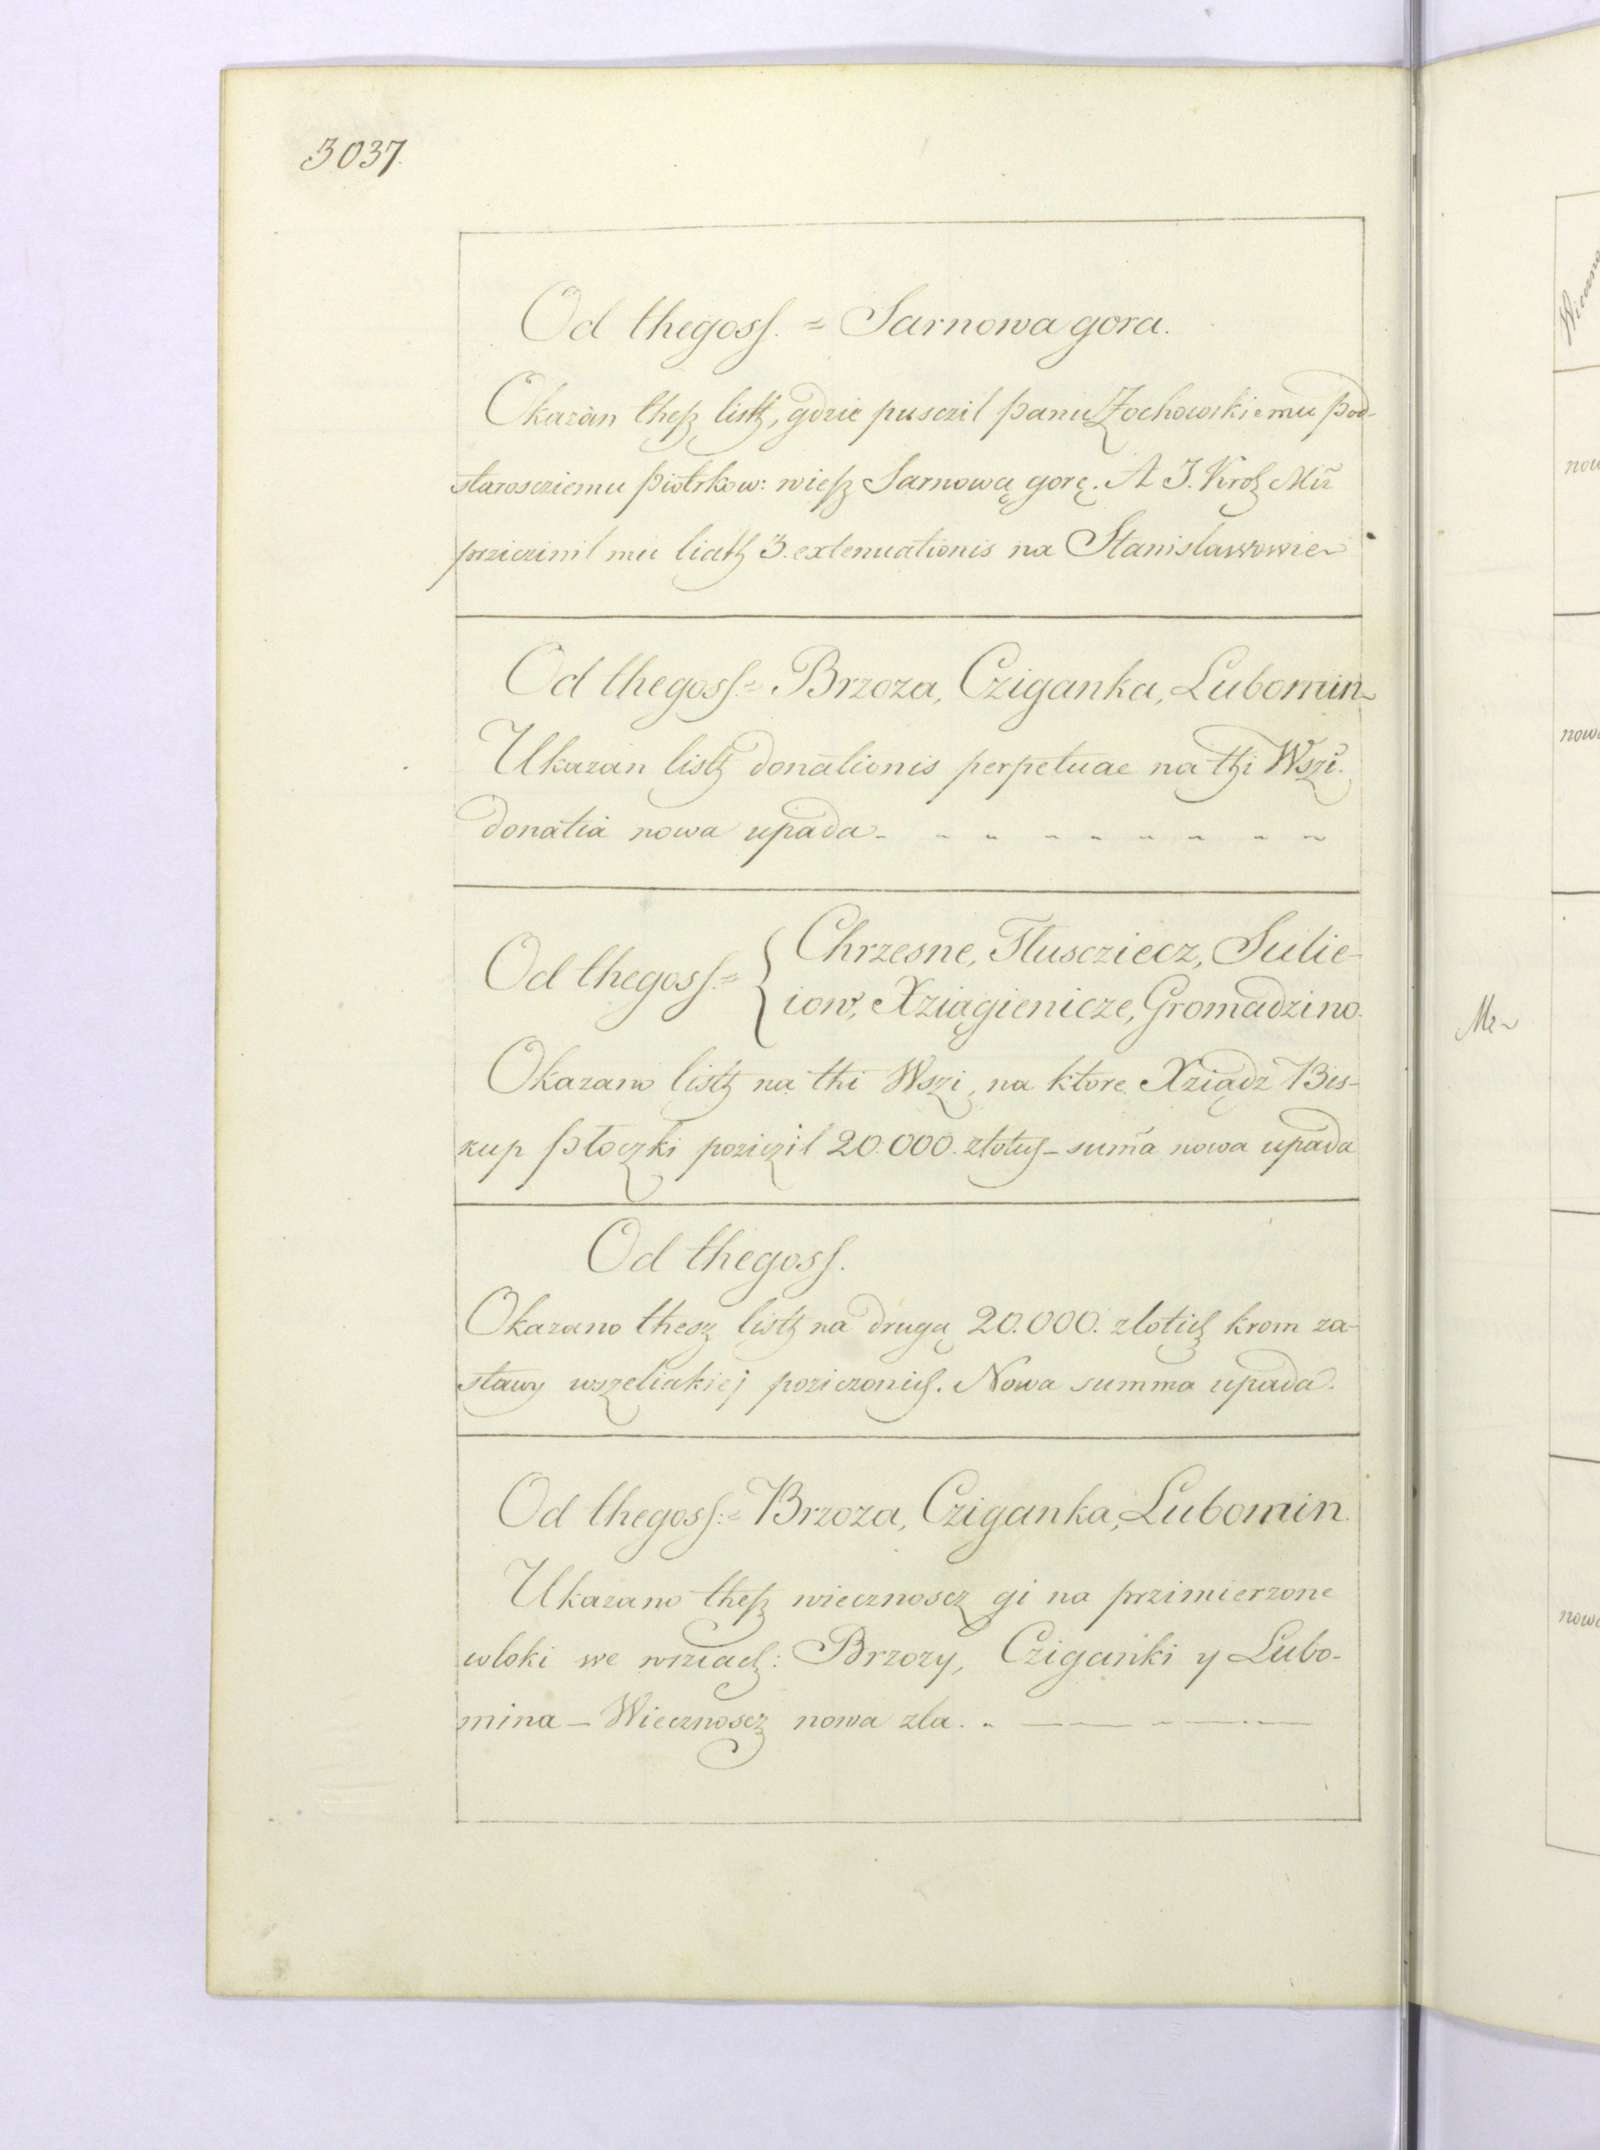 3037.
Od thegoss. = Sarnowa gora.
Okazan thesz listh, gdzie pusczil panu Zochowskiemu pod-
starosciemu piotrkow: wiesz Sarnową gorę. A J. Krolz Mć
prziczinil mu liath 3. extenuationis na Stanislawowie
Od thegoss = Brzoza, Cziganka, Lubomin
Ukazan listh donationis perpetuae na thi Wszi.
donatia nowa upada
Od thegoss. = { Chrzesne, Tluscziecz, Sulie-
iow, Xziągienicze, Gromadzino.
Okazano listh na thi Wszi, na ktore Xziądz Bis-
kup płoczki poziczil 20.000. złotych – suma nowa upada
Od thegoss.
Okazano thesz listh na drugą 20.000. zlotich krom za-
stawy wszeliakiej poziczonich. Nowa summa upada.
Od thegoss: = Brzoza, Cziganka, Lubomin.
Ukazano thesz wiecznoscz gi na przimierzone
wloki we wsziach: Brzozy, Cziganki y Lubo-
mina – Wiecznoscz nowa zla.
now
nowa
Mz
nowa